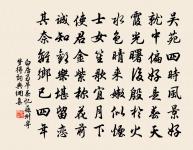 吳苑四時風景好
就中偏好是春天
霞光曙後殷於火
水色晴來嫩似煙
士女笙歌宜月下
使君金紫稱花前
誠知歡樂堪留戀
其奈離鄉已四年
白居易早春憶蘇州寄
夢得